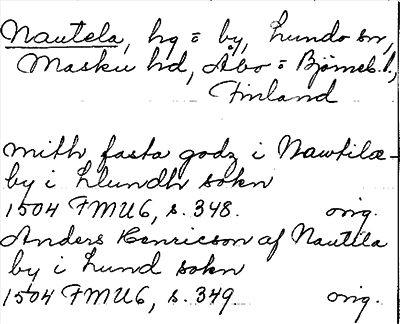 Nautela, hg = by, Lundo sn,
Masku hd, Åbo = Björneb. l.,
Finland
mith fasta godz i Nawtilæ-
by i Llundh sokn
1504 FMU6, s. 348. orig.
Anders Henricson af Nautela
by i Lund sokn
1504 FMU6, s. 349. orig.